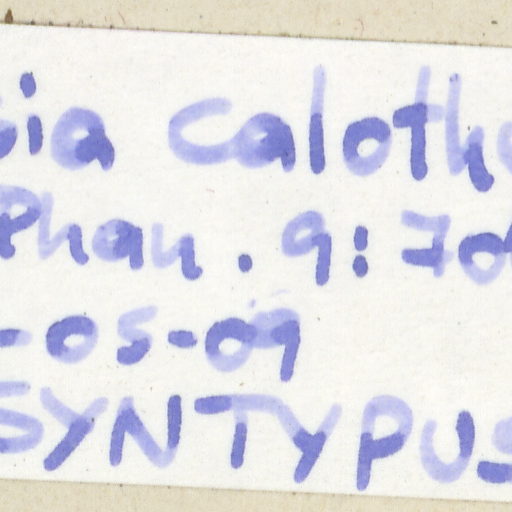 ia caloth
Phan. 9: 70
-05-09
SYNTYPUS